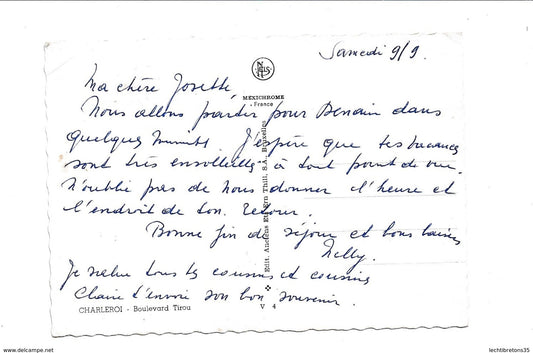 Samedi 9/9.
NELS
MEXICHROME
- France
Ma chère Josette
Nous allons partir pour Denain dans
quelques minutes. J'espère que tes vacances
sont très ensoleillées à tout point de vue.
N'oublie pas de nous donner l'heure et
l'endroit de ton retour.
Bonne fin de séjour et bons baisers
Nelly.
Je salue tous ts cousins et cousines
Claire t'envoie son bon souvenir.
Edit. Anciens Ets. Ern. Thill, S.A., Bruxelles
CHARLEROI - Boulevard Tirou
V 4
www.delcampe.net
lechtibretons35